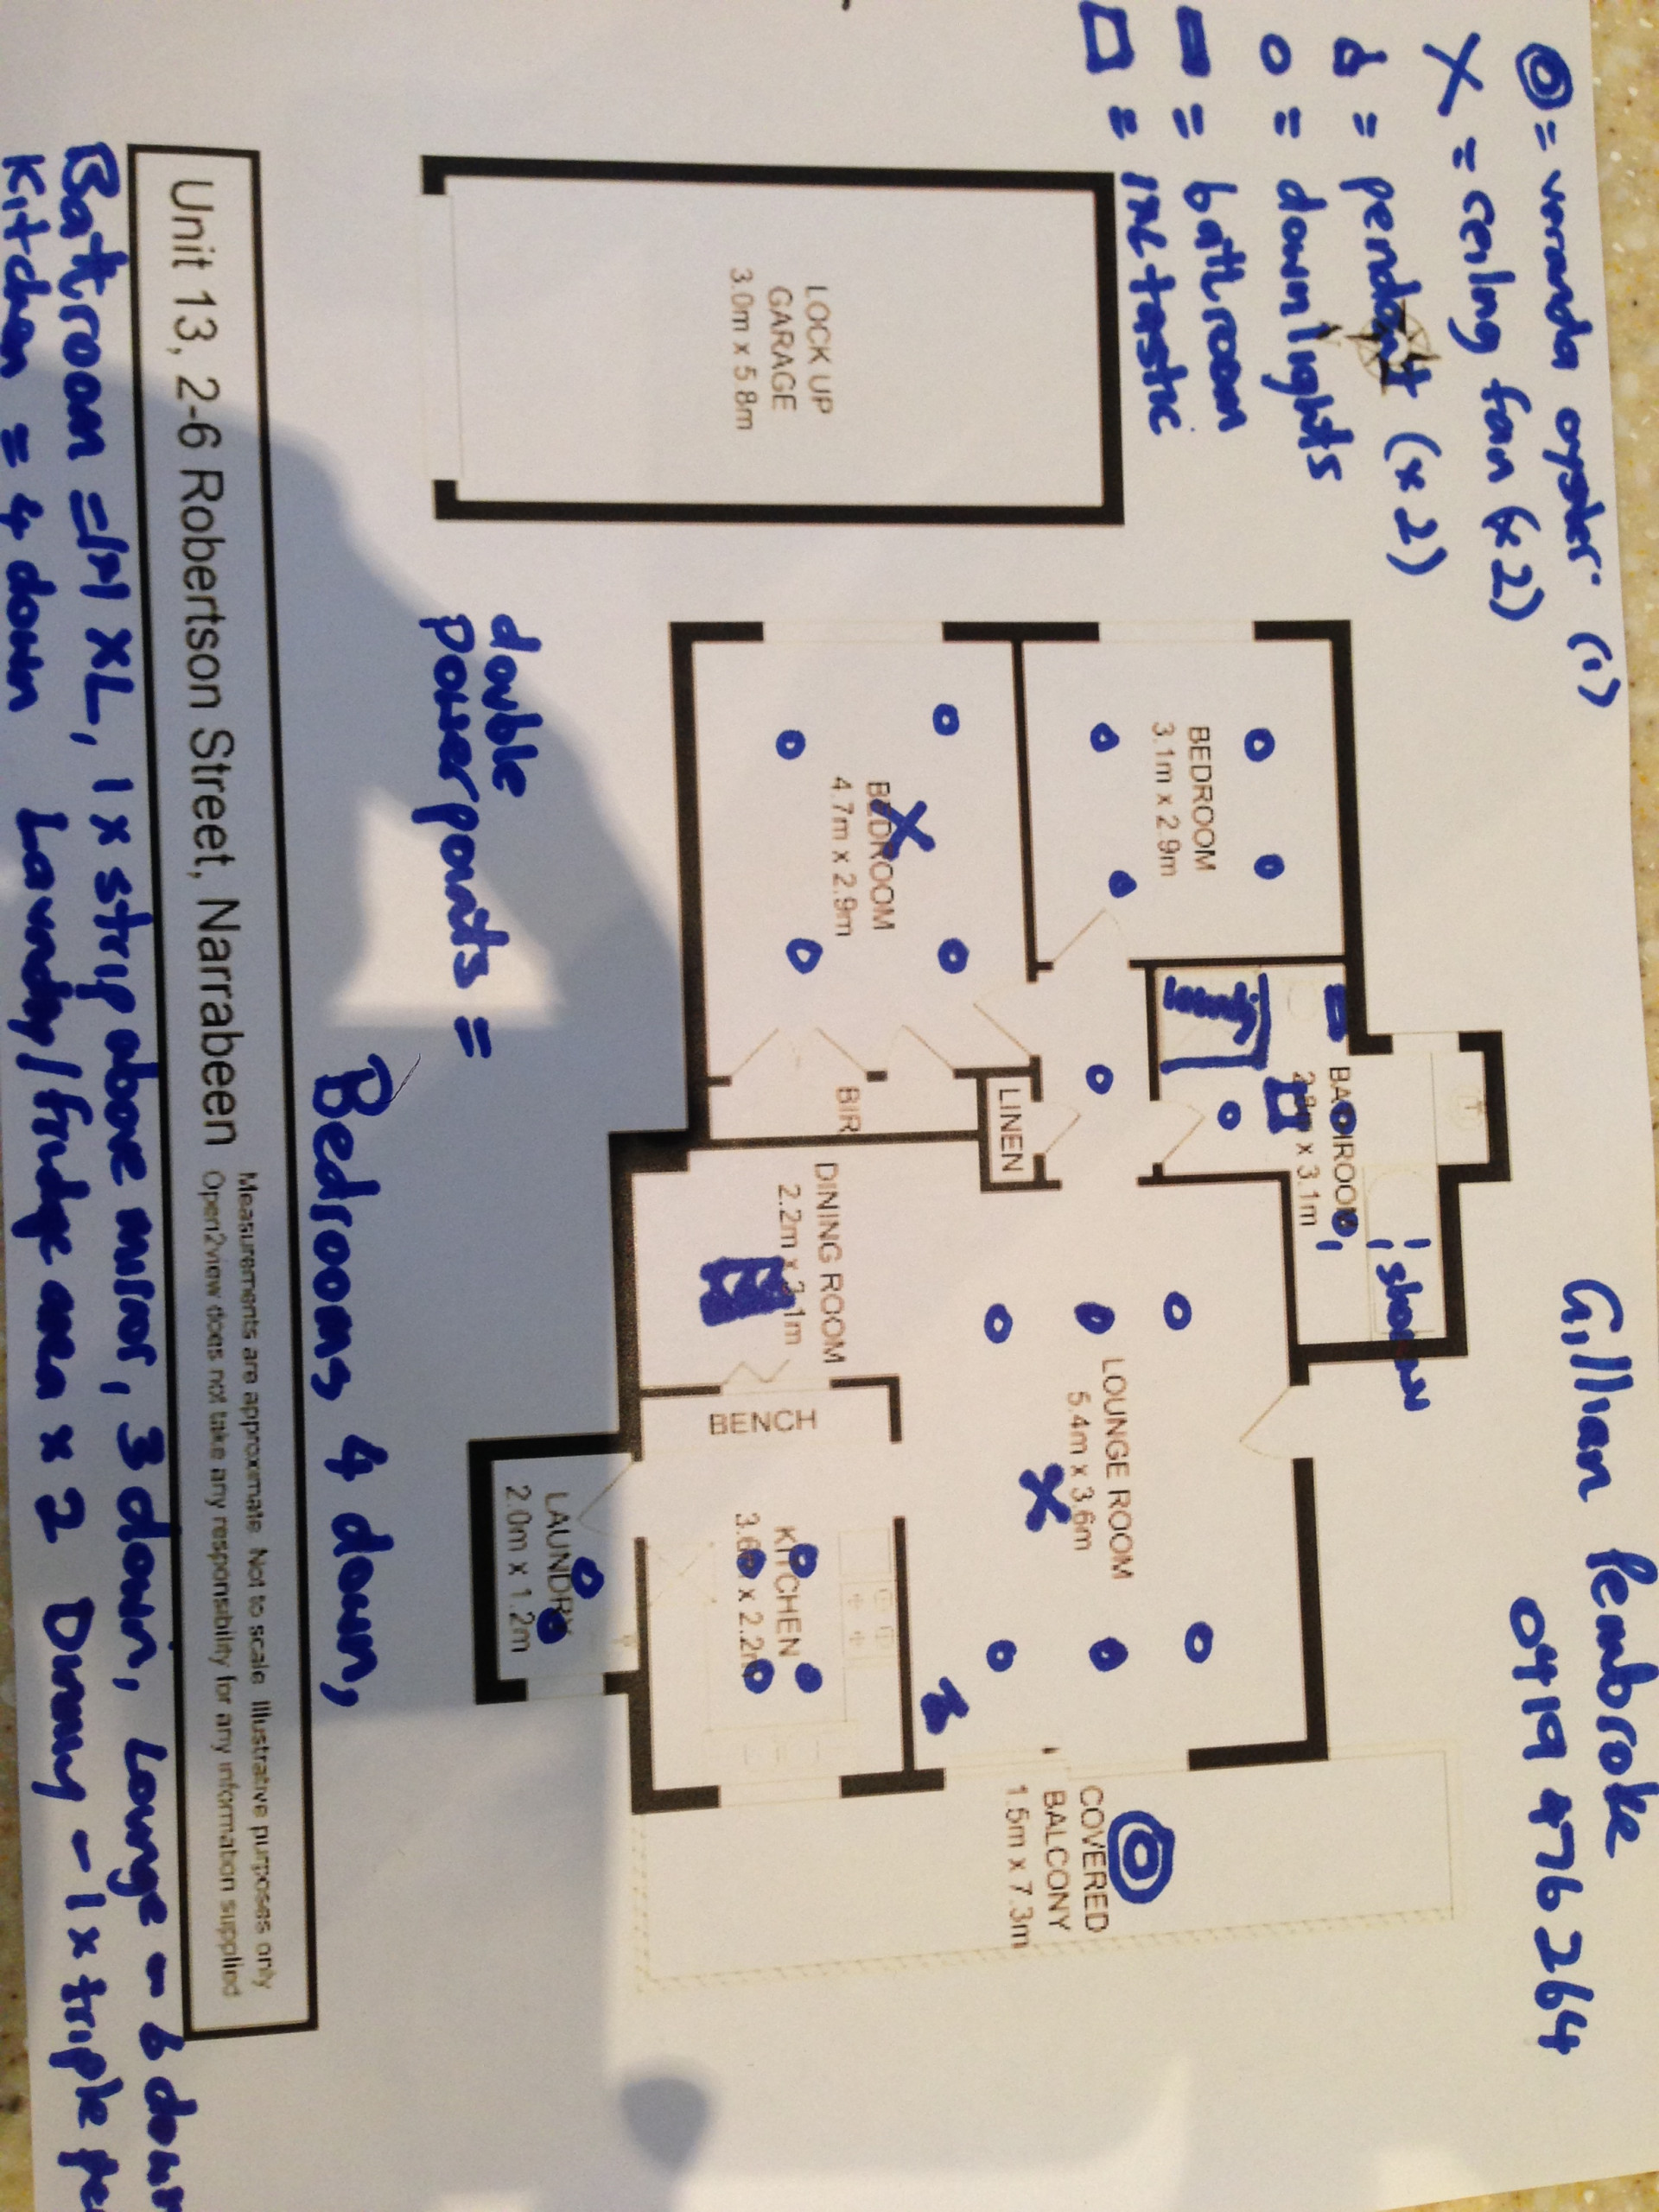 ◎ = veranda oyster (1)
X = ceiling fan (x 2)
= pendant (x 2)
o = downlights
= bathroom
□ = IXL tastic
Gillian Pembroke
0419 476 264
LOCK UP
GARAGE
3.0m x 5.8m
BEDROOM
3.1m x 2.9m
BEDROOM
4.7m x 2.9m
BATHROOM
x 3.1m
shower
LINEN
BIR
DINING ROOM
2.2m x 3.1m
LOUNGE ROOM
5.4m x 3.6m
BENCH
KITCHEN
3.6m x 2.2m
LAUNDRY
2.0m x 1.2m
COVERED
BALCONY
1.5m x 7.3m
double
powerpoints =
Bedrooms 4 down,
Unit 13, 2-6 Robertson Street, Narrabeen
Measurements are approximate. Not to scale. Illustrative purposes only
Open2view does not take any responsibility for any information supplied
Batroom = IXL, 1x strip above mirror, 3 down, Lounge - 6 down
Kitchen = 4 down Laundry/fridge area x 2 Dinning - 1x triple